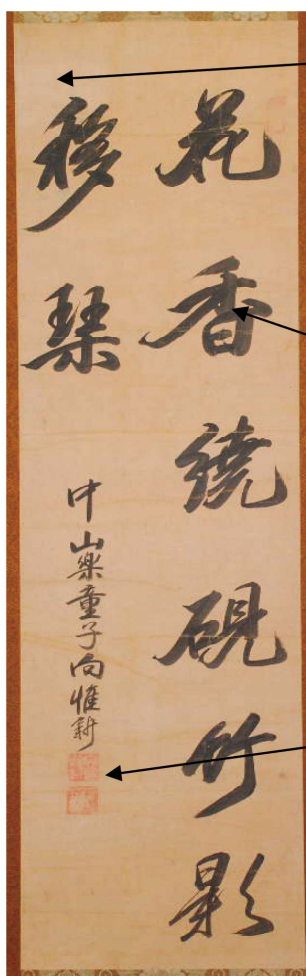 花香繞硯竹影
移琴
中山樂童子向惟耕